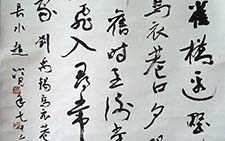 雀橋边野
烏衣巷口夕陽
舊時王謝堂
飛入尋常
家 劉禹錫烏衣巷
長小趙